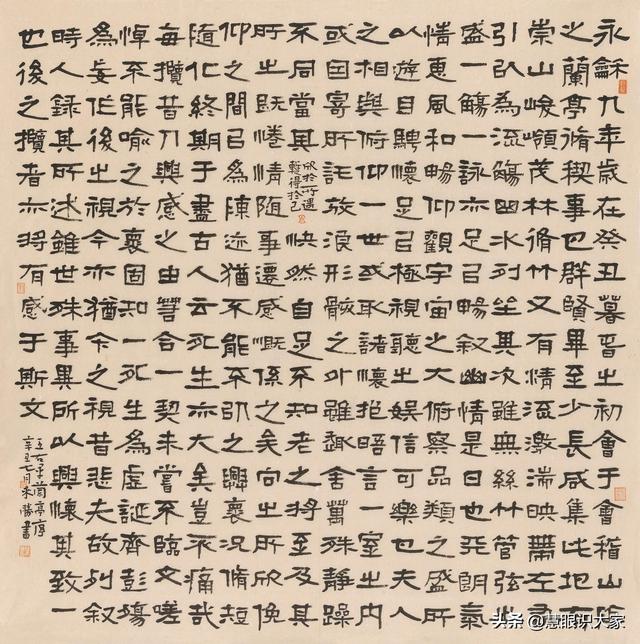 永龢九年歲在癸丑暮春之初會于會稽山陰
之蘭亭脩稧事也群賢畢至少長咸集此地有
崇山峻領茂林脩竹又有清流激湍映帶左右
引以為流觴曲水列坐其次雖無絲竹管弦之
盛一觴一詠亦足以暢叙幽情是日也天朗氣
清惠風和暢仰觀宇宙之大俯察品類之盛所
以遊目騁懷足以極視聽之娛信可樂也夫人
之相與俯仰一世或取諸懷抱晤言一室之內
或因寄所託放浪形骸之外雖趣舍萬殊靜躁
不同當其快然自足不知老之將至及其
欣於所遇
暫得於己
所之既惓情隨事遷感慨係之矣向之所欣俛
仰之間已為陳迹猶不能不以之興懷況脩短
隨化終期于盡古人云死生亦大矣豈不痛哉
每攬昔人興感之由若合一契未嘗不臨文嗟
悼不能喻之於懷固知一死生為虛誕齊彭殤
為妄作後之視今亦猶今之視昔悲夫故列叙
時人錄其所述雖世殊事異所以興懷其致一
也後之攬者亦將有感于斯文
王右軍蘭亭序
辛丑七月勝書
头条 @慧眼识大家